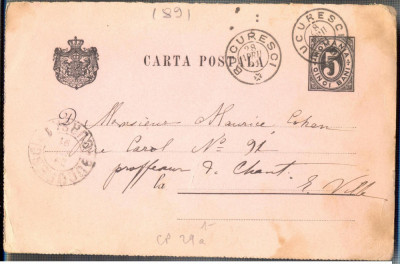 (891
CARTA POSTALA
BUCURESCI
28
BUCURESCI
28
ROMANIA
5
CINCI BANI
D
Monsieur Maurice Cohen
Rue Carol No 92
professeur de Chant.
la E. Ville
CP 29a
1-